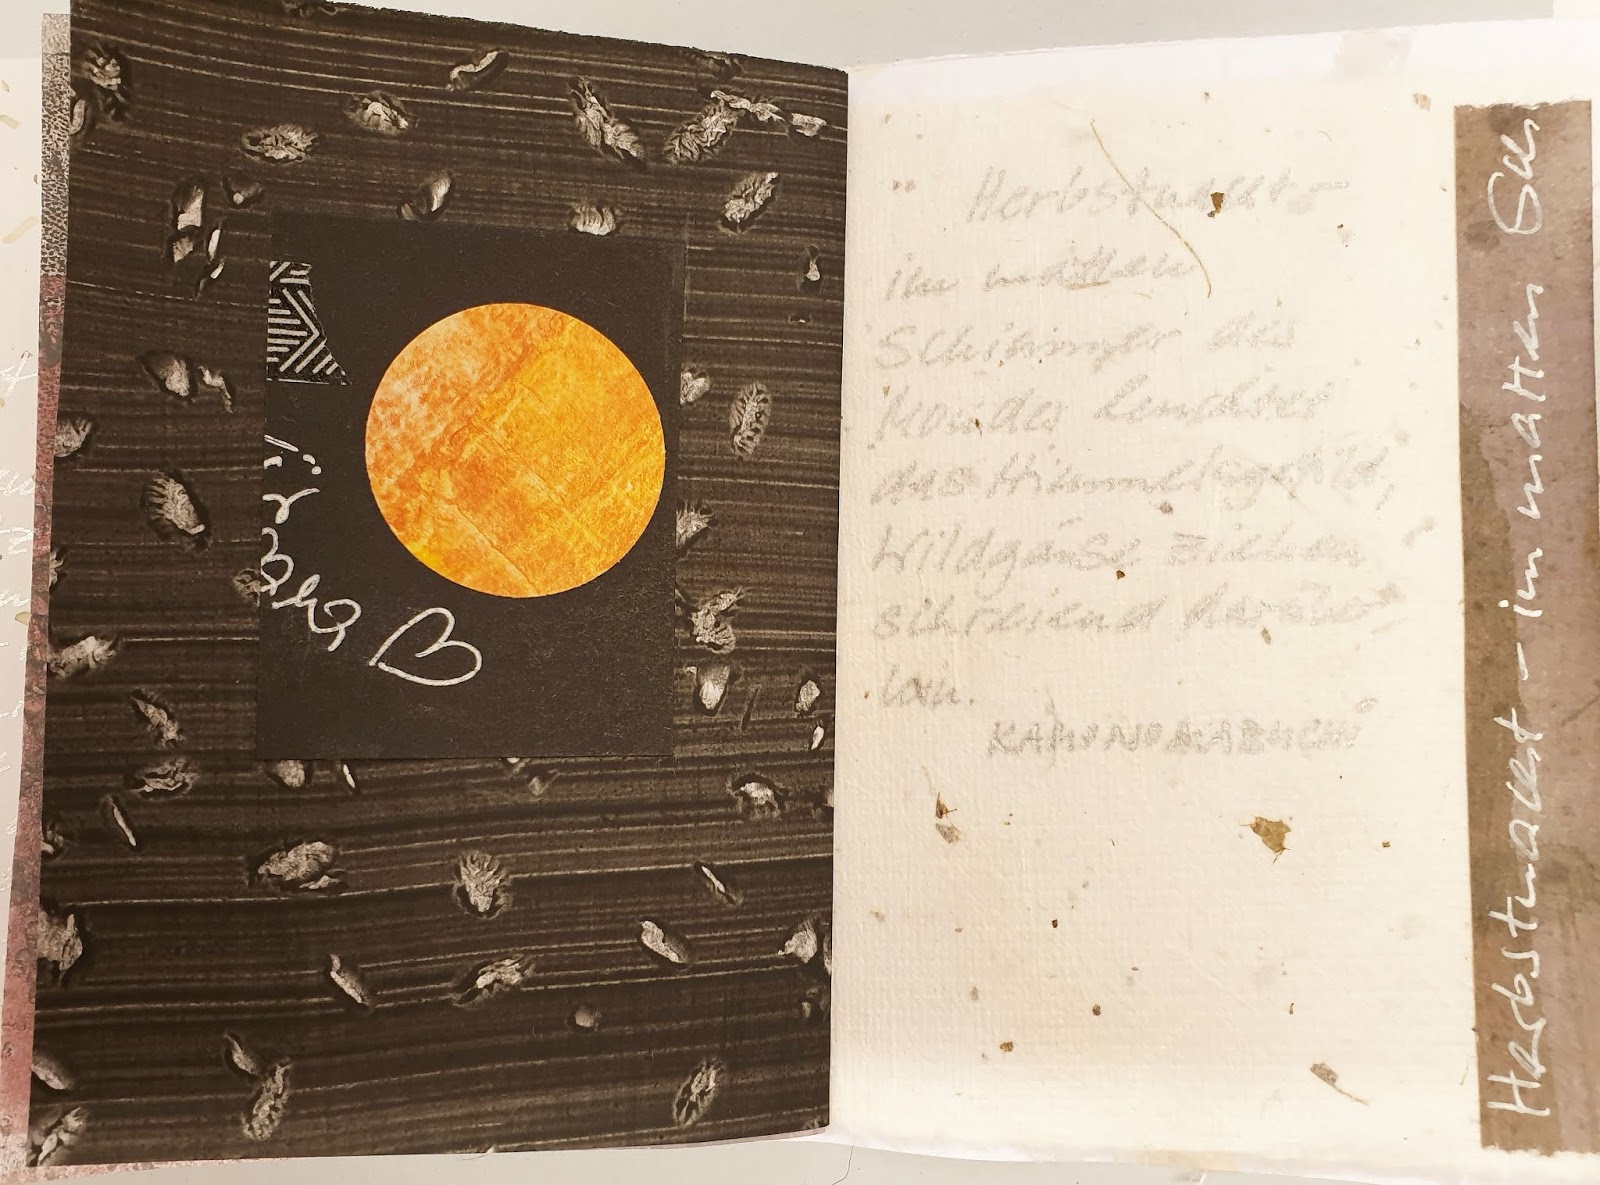 Herbstnacht –
im matten
Schimmer des
Mondes leuchtet
das Himmelsgefild,
Wildgänse ziehen
schreiend darüber
hin.
KAMO NO MABUCHI
Herbstnacht – im matten Sch